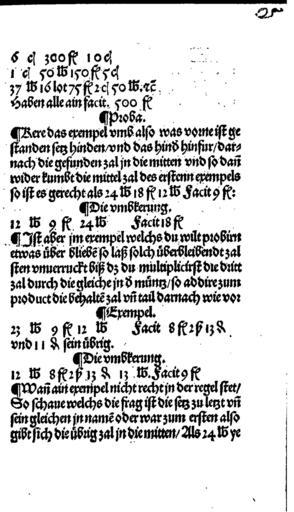 25
6 cl 300 fl 10 cl
1 cl 50 lb 150 fl 5 cl
37 lb 16 lot 75 fl 2 cl 50 lb. ꝛc.
Haben alle ain facit. 500 fl
¶Proba.
¶Kere das exempel vmb also was vorne ist ge
standen setz hinden/vnd das hinď hinfur/dar-
nach die gefunden zal jn die mitten vnd so dañ
wider kumbt die mittel zal des erstenn exempels
so ist es gerecht als 24 lb 18 fl 12 lb Facit 9 fl:
¶Die vmbkerung.
12 lb 9 fl 24 lb Facit 18 fl
¶Ist aber jm exempel welchs du wilt probirn
etwas vber blibē so laß solch vberbleibendt zal
sten vnuerruckt biß dz du multiplicirst die dritt
zal durch die gleiche jn ď müntz/so addire zum
product die behaltē zal vñ tail darnach wie vor
¶Exempel.
23 lb 9 fl 12 lb Facit 8 fl 2 ß 13 ₰
vnd 11 ₰ sein übrig.
¶Die vmbkerung.
12 lb 8 fl 2 ß 13 ₰ 13 lb. Facit 9 fl
¶Wañ ain exempel nicht recht jn der regel stet/
So schaue welchs die frag ist die setz zu letzt vñ
sein gleichen jn namē oder war zum ersten also
gibt sich die übrig zal jn die mitten/Als 24 lb ye